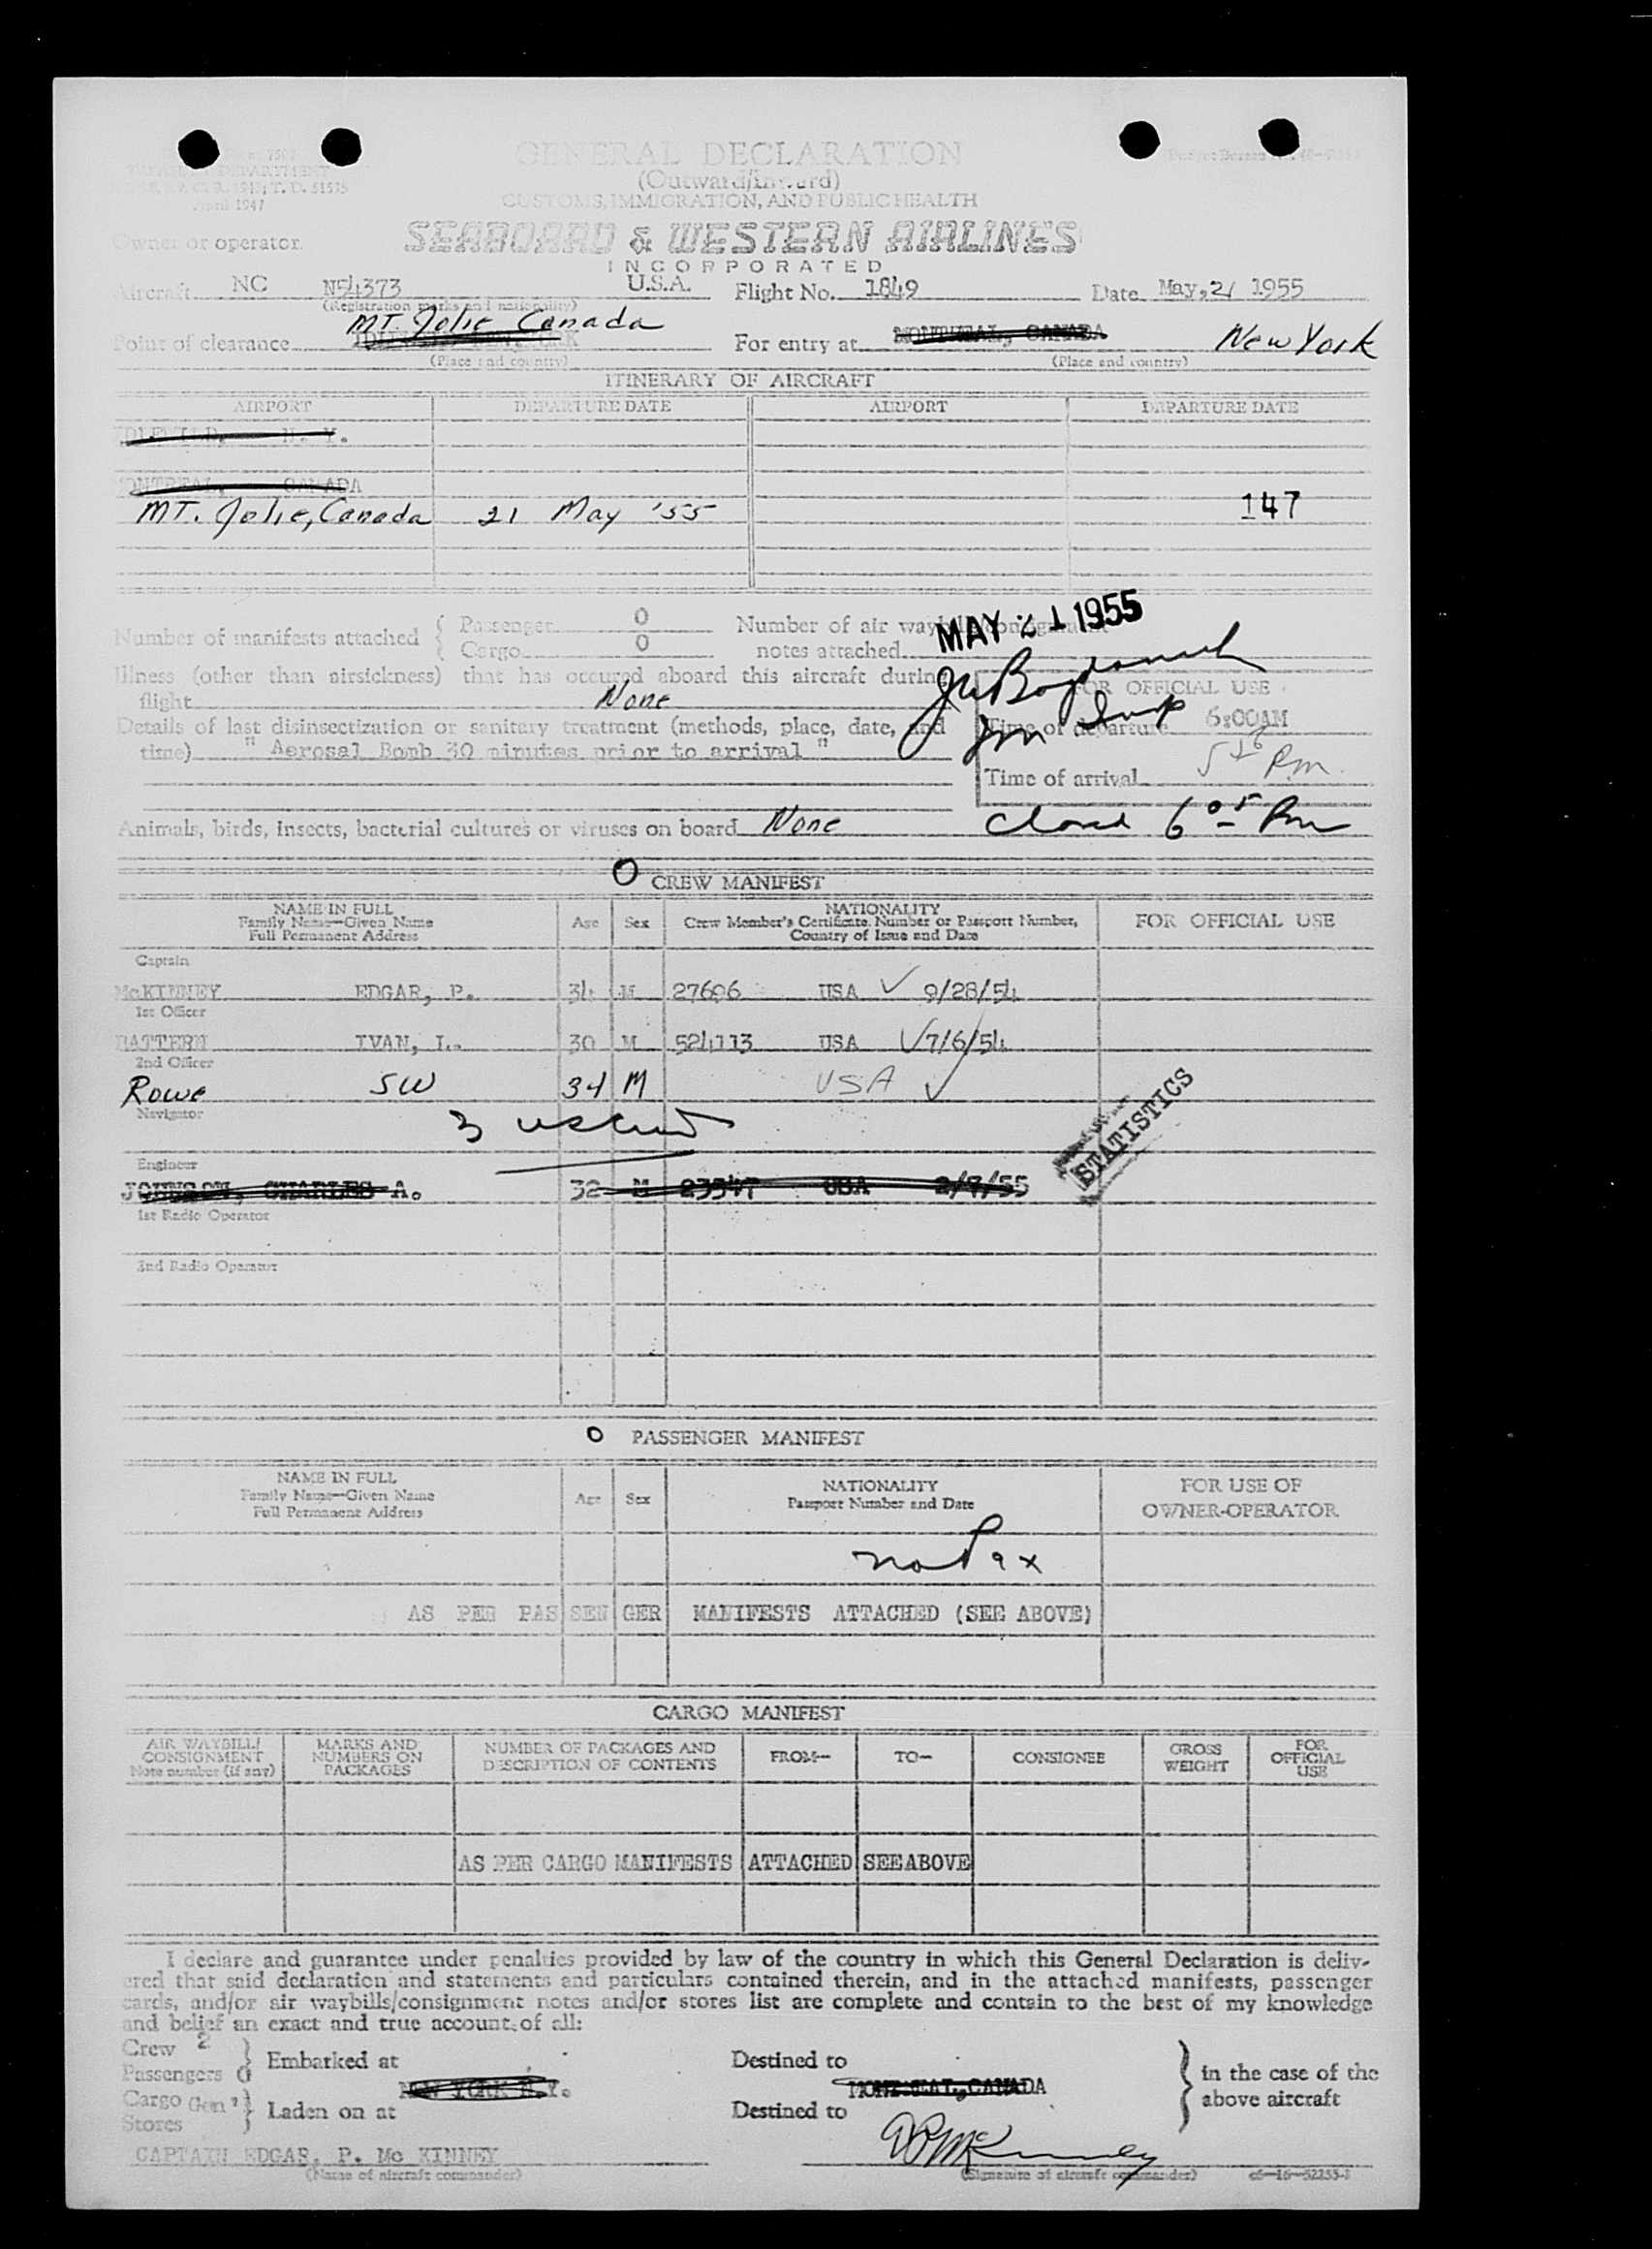 GENERAL DECLARATION
(Outward/Inward)
CUSTOMS, IMMIGRATION, AND PUBLIC HEALTH
T. D. 51525
April 1947
Owner or operator
SEABOARD & WESTERN AIRLINES
INCORPORATED
Aircraft NC N54373 U.S.A. Flight No. 1849 Date May, 21 1955
(Registration marks and nationality)
MT. Jolie Canada
Point of clearance For entry at MONTREAL, CANADA New York
(Place and country) (Place and country)
ITINERARY OF AIRCRAFT
AIRPORT DEPARTURE DATE AIRPORT DEPARTURE DATE
IDLEWILD, N. Y.
MONTREAL, CANADA
MT. Jolie, Canada 21 May '55 147
MAY 21 1955
Number of manifests attached { Passenger 0 Number of air waybills/consignment
Cargo 0 notes attached
Illness (other than airsickness) that has occured aboard this aircraft during
flight None
FOR OFFICIAL USE
Details of last disinsectization or sanitary treatment (methods, place, date, and
time) " Aerosal Bomb 30 minutes prior to arrival "
Time of departure 6:00AM
Time of arrival 5 16 Pm
Animals, birds, insects, bacterial cultures or viruses on board None
6 05 Pm
O CREW MANIFEST
NAME IN FULL
Family Name—Given Name
Full Permanent Address
Age Sex
NATIONALITY
Crew Member's Certificate Number or Passport Number,
Country of Issue and Date
FOR OFFICIAL USE
Captain
McKINNEY EDGAR, P. 34 M 27696 USA ✓ 9/28/54
1st Officer
IVAN, L. 30 M 524113 USA ✓ 7/6/54
2nd Officer
Rowe SW 34 M USA ✓
Navigator
3
STATISTICS
Engineer
JOHNSON, CHARLES A. 32 M 23547 USA 2/7/55
1st Radio Operator
2nd Radio Operator
O PASSENGER MANIFEST
NAME IN FULL
Family Name—Given Name
Full Permanent Address
Age Sex
NATIONALITY
Passport Number and Date
FOR USE OF
OWNER-OPERATOR
no Pax
AS PER PASSENGER MANIFESTS ATTACHED (SEE ABOVE)
CARGO MANIFEST
AIR WAYBILL/
CONSIGNMENT
Note number (if any)
MARKS AND
NUMBERS ON
PACKAGES
NUMBER OF PACKAGES AND
DESCRIPTION OF CONTENTS
FROM— TO— CONSIGNEE
GROSS
WEIGHT
FOR
OFFICIAL
USE
AS PER CARGO MANIFESTS ATTACHED SEE ABOVE
I declare and guarantee under penalties provided by law of the country in which this General Declaration is deliv-
ered that said declaration and statements and particulars contained therein, and in the attached manifests, passenger
cards, and/or air waybills/consignment notes and/or stores list are complete and contain to the best of my knowledge
and belief an exact and true account of all:
Crew 2
Passengers 0 } Embarked at Destined to
NEW YORK N.Y. MONTREAL, CANADA
Cargo Gen'l
Stores } Laden on at Destined to
} in the case of the
above aircraft
CAPTAIN EDGAR, P. Mc KINNEY EP McKinney
(Name of aircraft commander) (Signature of aircraft commander)